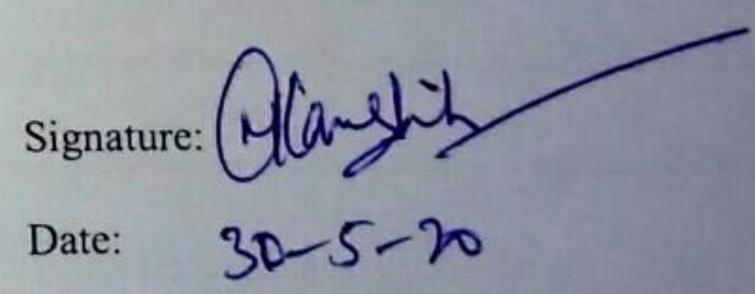 Signature:
Date: 30-5-20